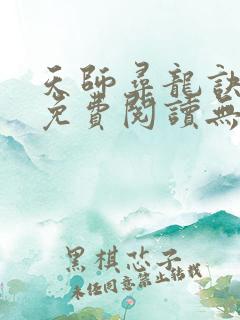 天師尋龍訣
免費閱讀無
黑棋芯子
未经同意禁止转载